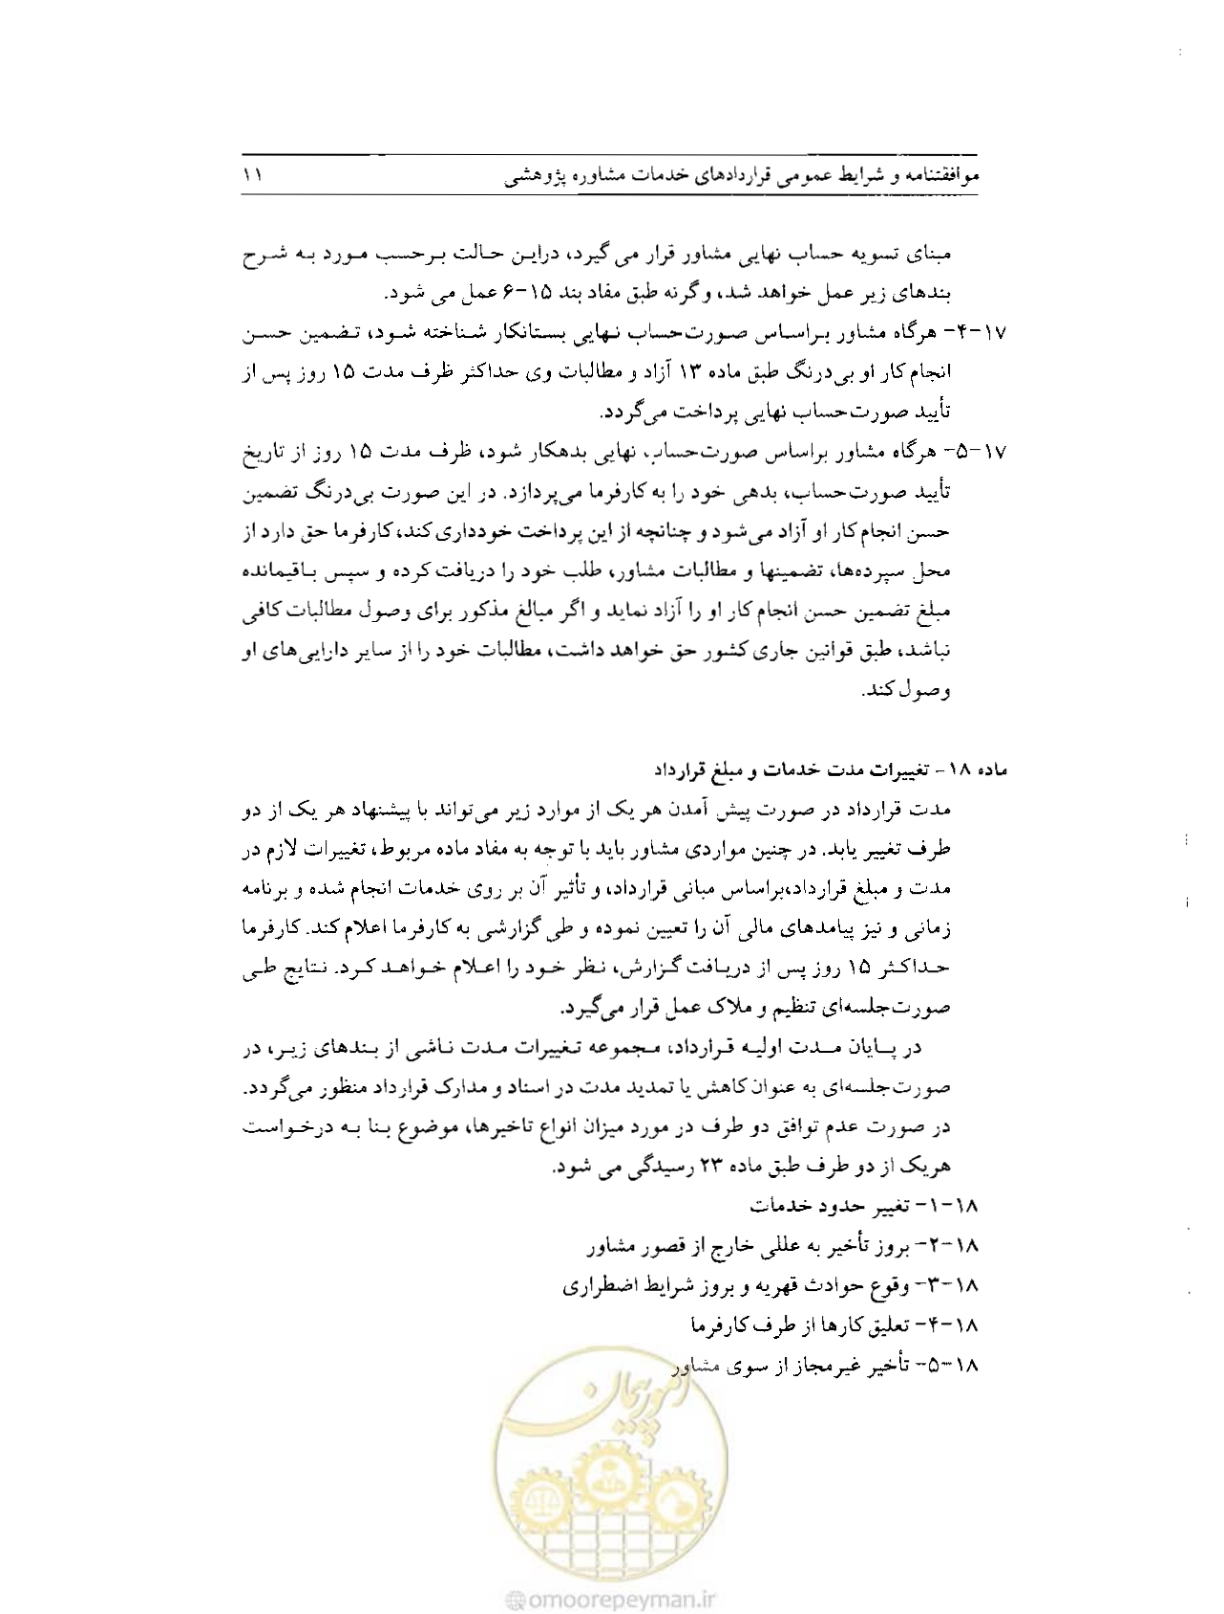 موافقتنامه و شرایط عمومی قراردادهای خدمات مشاوره پژوهشی ۱۱
مبنای تسویه حساب نهایی مشاور قرار می گیرد، دراین حالت برحسب مورد به شرح
بندهای زیر عمل خواهد شد، وگرنه طبق مفاد بند ۱۵-۶ عمل می شود.
۱۷-۴- هرگاه مشاور براساس صورت‌حساب نهایی بستانکار شناخته شود، تضمین حسن
انجام کار او بی‌درنگ طبق ماده ۱۳ آزاد و مطالبات وی حداکثر ظرف مدت ۱۵ روز پس از
تأیید صورت‌حساب نهایی پرداخت می‌گردد.
۱۷-۵- هرگاه مشاور براساس صورت‌حساب، نهایی بدهکار شود، ظرف مدت ۱۵ روز از تاریخ
تأیید صورت‌حساب، بدهی خود را به کارفرما می‌پردازد. در این صورت بی‌درنگ تضمین
حسن انجام کار او آزاد می‌شود و چنانچه از این پرداخت خودداری کند، کارفرما حق دارد از
محل سپرده‌ها، تضمینها و مطالبات مشاور، طلب خود را دریافت کرده و سپس باقیمانده
مبلغ تضمین حسن انجام کار او را آزاد نماید و اگر مبالغ مذکور برای وصول مطالبات کافی
نباشد، طبق قوانین جاری کشور حق خواهد داشت، مطالبات خود را از سایر دارایی‌های او
وصول کند.
ماده ۱۸- تغییرات مدت خدمات و مبلغ قرارداد
مدت قرارداد در صورت پیش آمدن هر یک از موارد زیر می‌تواند با پیشنهاد هر یک از دو
طرف تغییر یابد. در چنین مواردی مشاور باید با توجه به مفاد ماده مربوط، تغییرات لازم در
مدت و مبلغ قرارداد،براساس مبانی قرارداد، و تأثیر آن بر روی خدمات انجام شده و برنامه
زمانی و نیز پیامدهای مالی آن را تعیین نموده و طی گزارشی به کارفرما اعلام کند. کارفرما
حداکثر ۱۵ روز پس از دریافت گزارش، نظر خود را اعلام خواهد کرد. نتایج طی
صورت‌جلسه‌ای تنظیم و ملاک عمل قرار می‌گیرد.
در پایان مدت اولیه قرارداد، مجموعه تغییرات مدت ناشی از بندهای زیر، در
صورت‌جلسه‌ای به عنوان کاهش یا تمدید مدت در اسناد و مدارک قرارداد منظور می‌گردد.
در صورت عدم توافق دو طرف در مورد میزان انواع تاخیرها، موضوع بنا به درخواست
هریک از دو طرف طبق ماده ۲۳ رسیدگی می شود.
۱۸-۱- تغییر حدود خدمات
۱۸-۲- بروز تأخیر به عللی خارج از قصور مشاور
۱۸-۳- وقوع حوادث قهریه و بروز شرایط اضطراری
۱۸-۴- تعلیق کارها از طرف کارفرما
۱۸-۵- تأخیر غیرمجاز از سوی مشاور
امور پیمان
omoorepeyman.ir